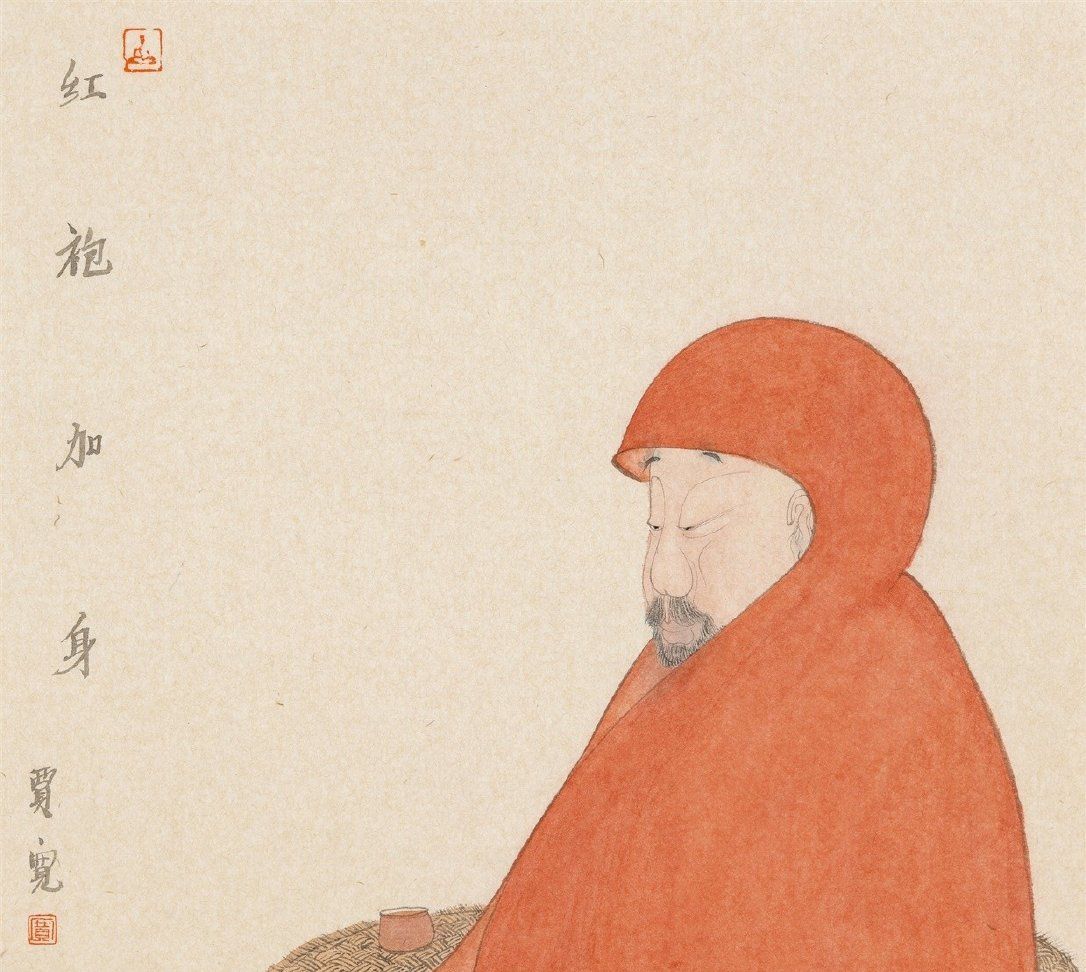 红袍加身
賈寬